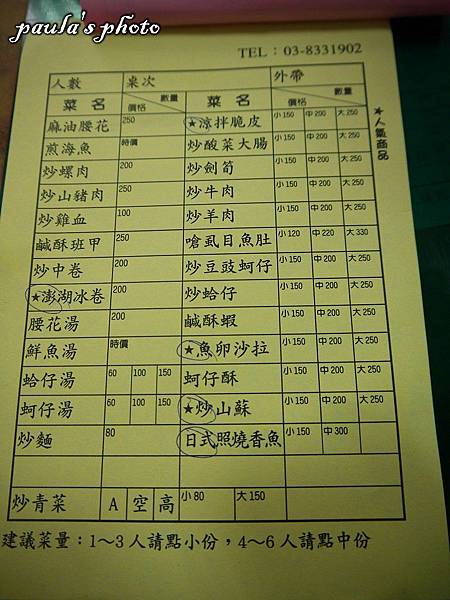 paula's photo
TEL：03-8331902
人數 桌次 外帶
菜名 價格 數量 菜名 價格 數量
★人氣商品
麻油腰花 250 ★涼拌脆皮 小150 中200 大250
煎海魚 時價 炒酸菜大腸 小150 中200 大250
炒螺肉 200 炒劍筍 小150 中200 大250
炒山豬肉 250 炒牛肉 小150 中200 大250
炒雞血 100 炒羊肉 小150 中200 大250
鹹酥班甲 250 嗆虱目魚肚 小120 中220 大330
炒中卷 200 炒豆豉蚵仔 小150 中200 大250
★澎湖冰卷 200 炒蛤仔 小150 中200 大250
腰花湯 200 鹹酥蝦 小150 中200 大250
鮮魚湯 時價 ★魚卵沙拉 小150 中200 大250
蛤仔湯 60 100 150 蚵仔酥 小150 中200 大250
蚵仔湯 60 100 150 ★炒山蘇 小150 中200 大250
炒麵 80 日式照燒香魚 小150 中300
炒青菜 A 空 高 小80 大150
建議菜量：1～3人請點小份，4～6人請點中份